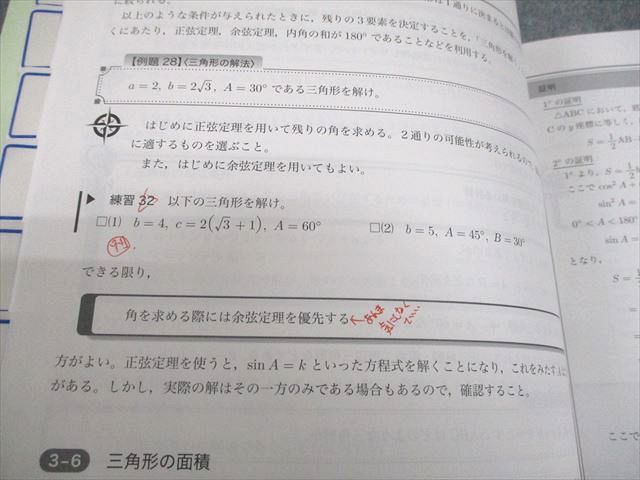 に絞られる。
以上のような条件が与えられたときに，残りの3要素を決定することを，「三角形を解く
くにあたり，正弦定理，余弦定理，内角の和が180°であることなどを利用する．
【例題 28】〈三角形の解法〉
a=2, b=2√3, A=30° である三角形を解け．
はじめに正弦定理を用いて残りの角を求める．2通りの可能性が考えられるので，
に適するものを選ぶこと．
また，はじめに余弦定理を用いてもよい．
練習32 以下の三角形を解け．
□(1) b=4, c=2(√3+1), A=60° □(2) b=5, A=45°, B=30°
できる限り，
角を求める際には余弦定理を優先する
方がよい．正弦定理を使うと，sin A = k といった方程式を解くことになり，これをみたす
がある．しかし，実際の解はその一方のみである場合もあるので，確認すること．
3-6 三角形の面積
証明
1° の証明
△ABC において，
C の y 座標に等しく，
S = 1/2 AB
2° の証明
1° より，S = 1/2
ここで cos² A +
sin² A =
0° < A < 180°
sin A =
となり，
S =
ここで